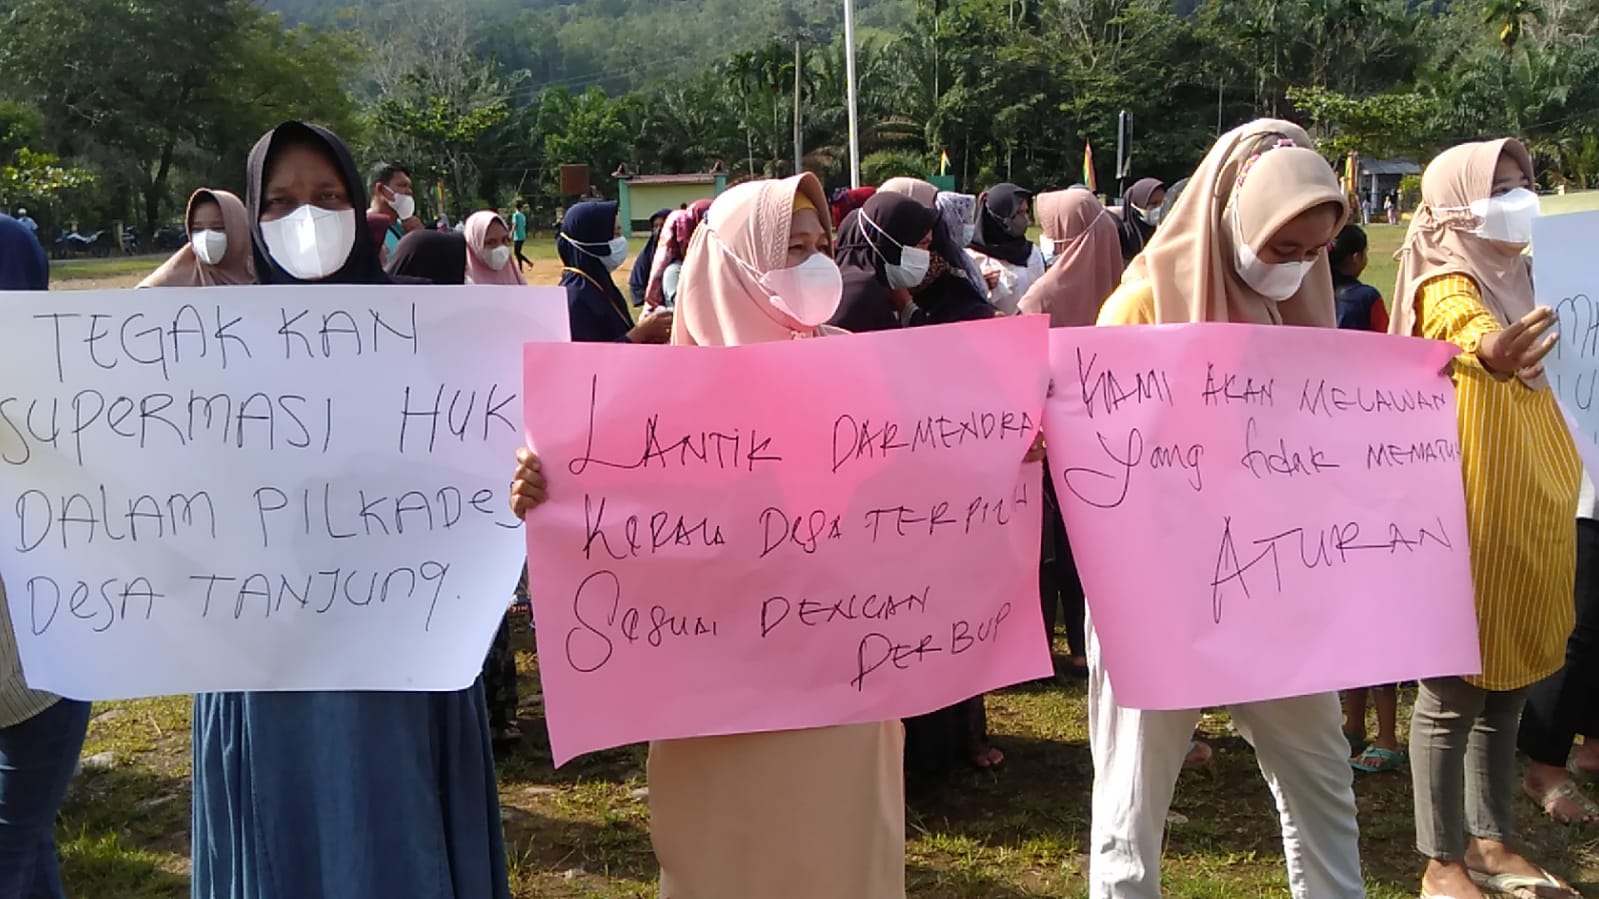 TEGAKKAN
SUPERMASI HUK
DALAM PILKADES
DESA TANJUNG.
LANTIK DARMENDRA
KEPALA DESA TERPILIH
SESUAI DENGAN
PERBUP
KAMI AKAN MELAWAN
Yang tidak MEMATUH
ATURAN